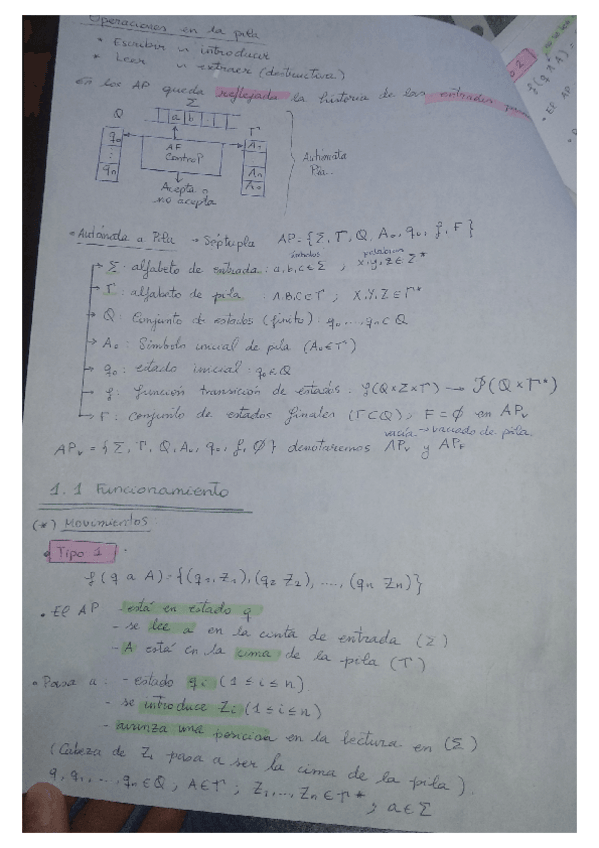 Operaciones en la pila
• Escribir ~ introducir
• Leer ~ extraer (destructiva)
En los AP queda reflejada la historia de las entradas
Σ
Q
a b
Γ
q₀
⋮
qₙ
AF
Control
Acepta o
no acepta
Aₙ
A₀
Autómata
Pila
• Autómata a Pila → Séptupla AP = {Σ, Γ, Q, A₀, q₀, f, F}
símbolos palabras
Σ : alfabeto de entrada : a,b,c ∈ Σ ; x,y,z ∈ Σ*
Γ : alfabeto de pila : A,B,C ∈ Γ ; X,Y,Z ∈ Γ*
Q : Conjunto de estados (finito) : q₀ ..., qₙ ⊂ Q
A₀ : Símbolo inicial de pila (A₀ ∈ Γ)
q₀ : estado inicial : q₀ ∈ Q
f : función transición de estados : f(Q×Σ×Γ) → P(Q×Γ*)
F : conjunto de estados finales (F⊂Q), F = ∅ en APᵥ
vacía → vaciado de pila
APᵥ = {Σ, Γ, Q, A₀, q₀, f, ∅} denotaremos APᵥ y AP_F
1.1 Funcionamiento
(*) Movimientos
• Tipo 1 :
f(q a A) = {(q₁, Z₁), (q₂ Z₂), ...., (qₙ Zₙ)}
• El AP está en estado q
- se lee a en la cinta de entrada (Σ)
- A está en la cima de la pila (Γ)
• Pasa a : - estado qᵢ (1 ≤ i ≤ n)
- se introduce Zᵢ (1 ≤ i ≤ n)
- avanza una posición en la lectura en (Σ)
(Cabeza de Zᵢ pasa a ser la cima de la pila).
q, q₁, ..., qₙ ∈ Q, A ∈ Γ ; Z₁, ..., Zₙ ∈ Γ* , a ∈ Σ
f(q a A) =
• El AP